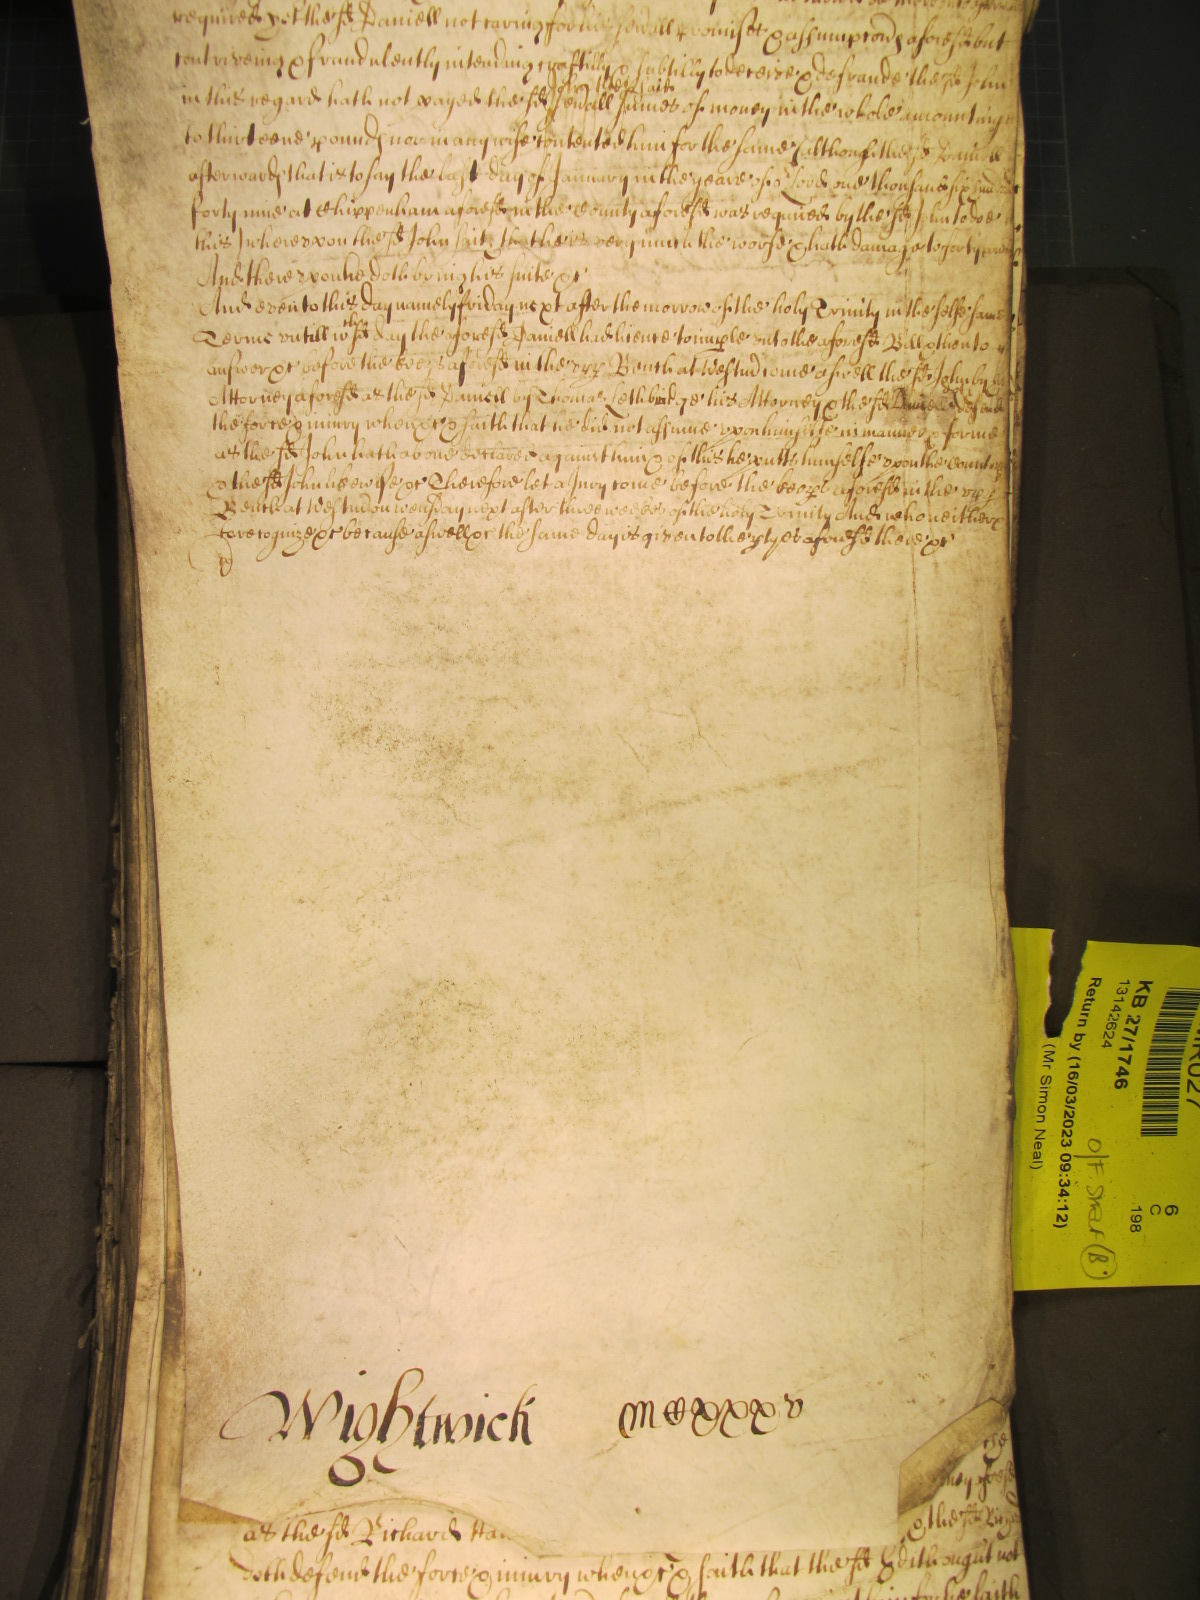 required yet the sd Daniell not caring for his sevall promises & assumpcons aforesd but
contriveing & fraudulently intending craftilly & subtilly to deceive & defraude the sd John
in this regard hath not payed the sd John the said sevall summes of money in the whole amounting
to thirteene pounds nor in any wise contented him for the same (although the sd Daniell
afterwards that is to say the last day of January in the yeare of or Lord one thousand six hundred
forty nine at Chippenham aforesd in the County aforesd was required by the sd John to doe
this) whereupon the sd John saith that he is very much the worse & hath damage to forty
And thereupon he doth bring his suite &c
And even to this day namely friday next after the morrow of the holy Trinity in the selfe same
Terme untill wch sd day the aforesd Daniell had licence to imple unto the aforesd Bill & then to
answer &c before the keeps aforesd in the upp Bench at Westm come aswell the sd John by his
Attorney aforesd as the sd Daniell by Thomas Lethbridge his Attorney & the sd Daniell defends
the force & iniury when &c & saith that he did not assume upon himselfe in manner & forme
as the sd John hath above declared against him & of this he putts himselfe upon the Country
& the sd John likewise &c Therefore let a Jury come before the keeps aforesd in the upp
Bench at Westm on wensday next after three weekes of the holy Trinity And who neither
to recognize &c because aswell &c the same day is given to the ptyes aforesd there &c
Wightwick mcxxxv
as the sd Richard
& the sd
doth defend the force & iniury when &c & saith that the sd Edith ought not
KB 27/1746
13142624
Return by (16/03/2023 09:34:12)
(Mr Simon Neal)
6
C
198
O/F Shelf B